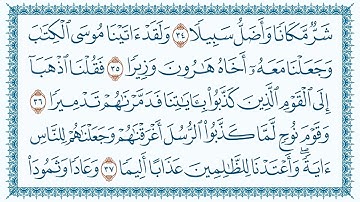 شَرٌّ مَّكَانًا وَأَضَلُّ سَبِيلًا ٣٤ وَلَقَدْ ءَاتَيْنَا مُوسَى ٱلْكِتَٰبَ
وَجَعَلْنَا مَعَهُۥٓ أَخَاهُ هَٰرُونَ وَزِيرًا ٣٥ فَقُلْنَا ٱذْهَبَآ
إِلَى ٱلْقَوْمِ ٱلَّذِينَ كَذَّبُوا۟ بِـَٔايَٰتِنَا فَدَمَّرْنَٰهُمْ تَدْمِيرًا ٣٦
وَقَوْمَ نُوحٍ لَّمَّا كَذَّبُوا۟ ٱلرُّسُلَ أَغْرَقْنَٰهُمْ وَجَعَلْنَٰهُمْ لِلنَّاسِ
ءَايَةً ۖ وَأَعْتَدْنَا لِلظَّٰلِمِينَ عَذَابًا أَلِيمًا ٣٧ وَعَادًا وَثَمُودَا۟